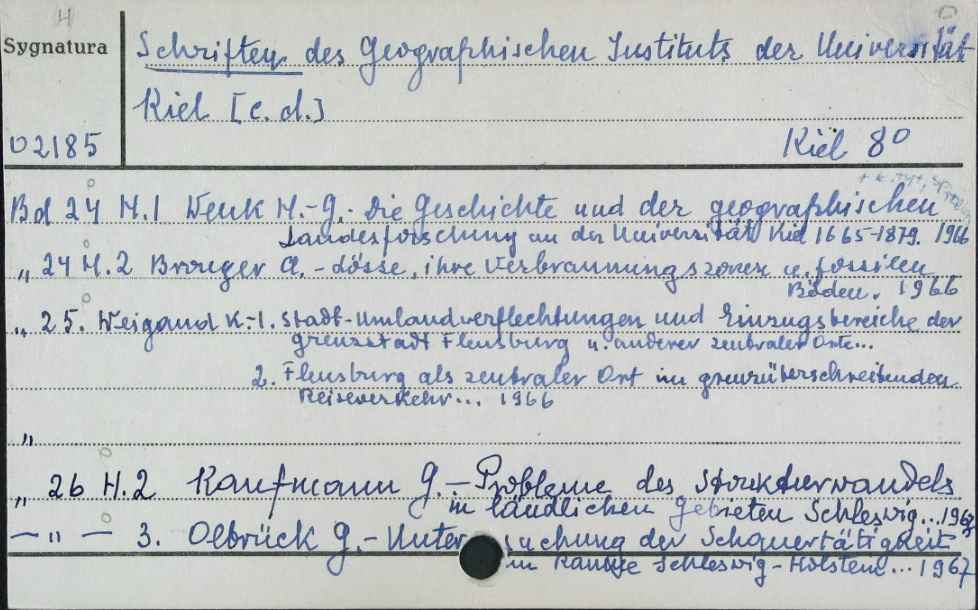 H
Sygnatura
Schriften des Geographischen Instituts der Universität
Kiel [c.d.]
02185
Kiel 8°
Bd 24 H.1 Wenk H.-G.- Die Geschichte und der geographischen
Landesforschung an der Universität Kiel 1665-1879. 1966
„ 24 H.2 Bronger A.- Lösse, ihre Verbraunungszonen u. fossilen
Böden. 1966
„ 25. Weigand K.-1. Stadt-Umlandverflechtungen und Einzugsbereiche der
Grenzstadt Flensburg u. anderer zentraler Orte...
2. Flensburg als zentraler Ort im grenzüberschreitenden
Reiseverkehr... 1966
„
„ 26 H.2 Kaufmann G.- Probleme des Strukturwandels
in ländlichen Gebieten Schleswig...196
— „ — 3. Olbrück G.- Untersuchung der Schauertätigkeit
im Raume Schleswig-Holstein... 1967